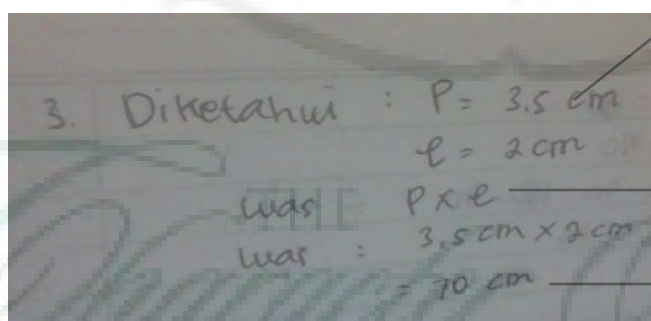 3. Diketahui : P = 3.5 cm
l = 2 cm
luas P x l
luas : 3,5 cm x 2 cm
= 70 cm